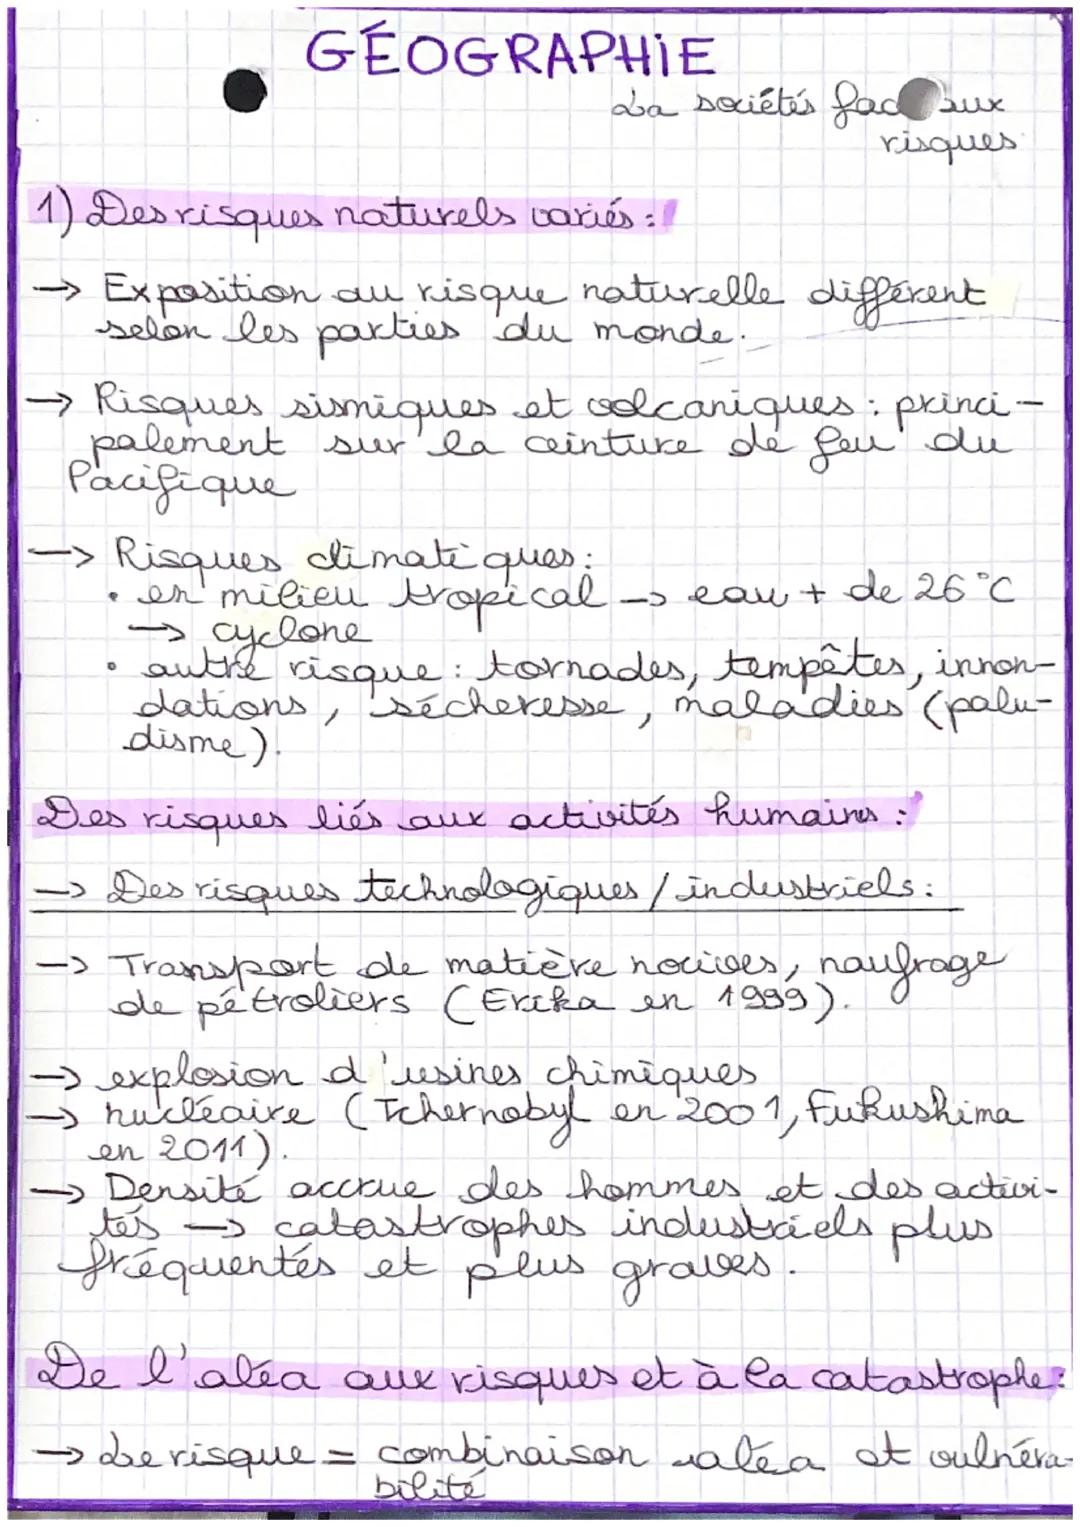 GÉOGRAPHIE
La sociétés fac aux
risques
1) Des risques naturels variés :
→ Exposition au risque naturelle différent
selon les parties du monde.
→ Risques sismiques et volcaniques : princi-
palement sur la ceinture de feu du
Pacifique
→ Risques climatiques :
• en milieu tropical → eau + de 26°C
→ cyclone
• autre risque : tornades, tempêtes, innon-
dations, sécheresse, maladies (palu-
disme).
Des risques liés aux activités humains :
→ Des risques technologiques / industriels :
→ Transport de matière nocives, naufrage
de pétroliers (Erika en 1999).
→ explosion d'usines chimiques
→ nucléaire (Tchernobyl en 2001, Fukushima
en 2011).
→ Densité accrue des hommes et des activi-
tés → catastrophes industriels plus
fréquentés et plus graves.
De l'aléa aux risques et à la catastrophe :
→ Le risque = combinaison aléa et vulnéra-
bilité